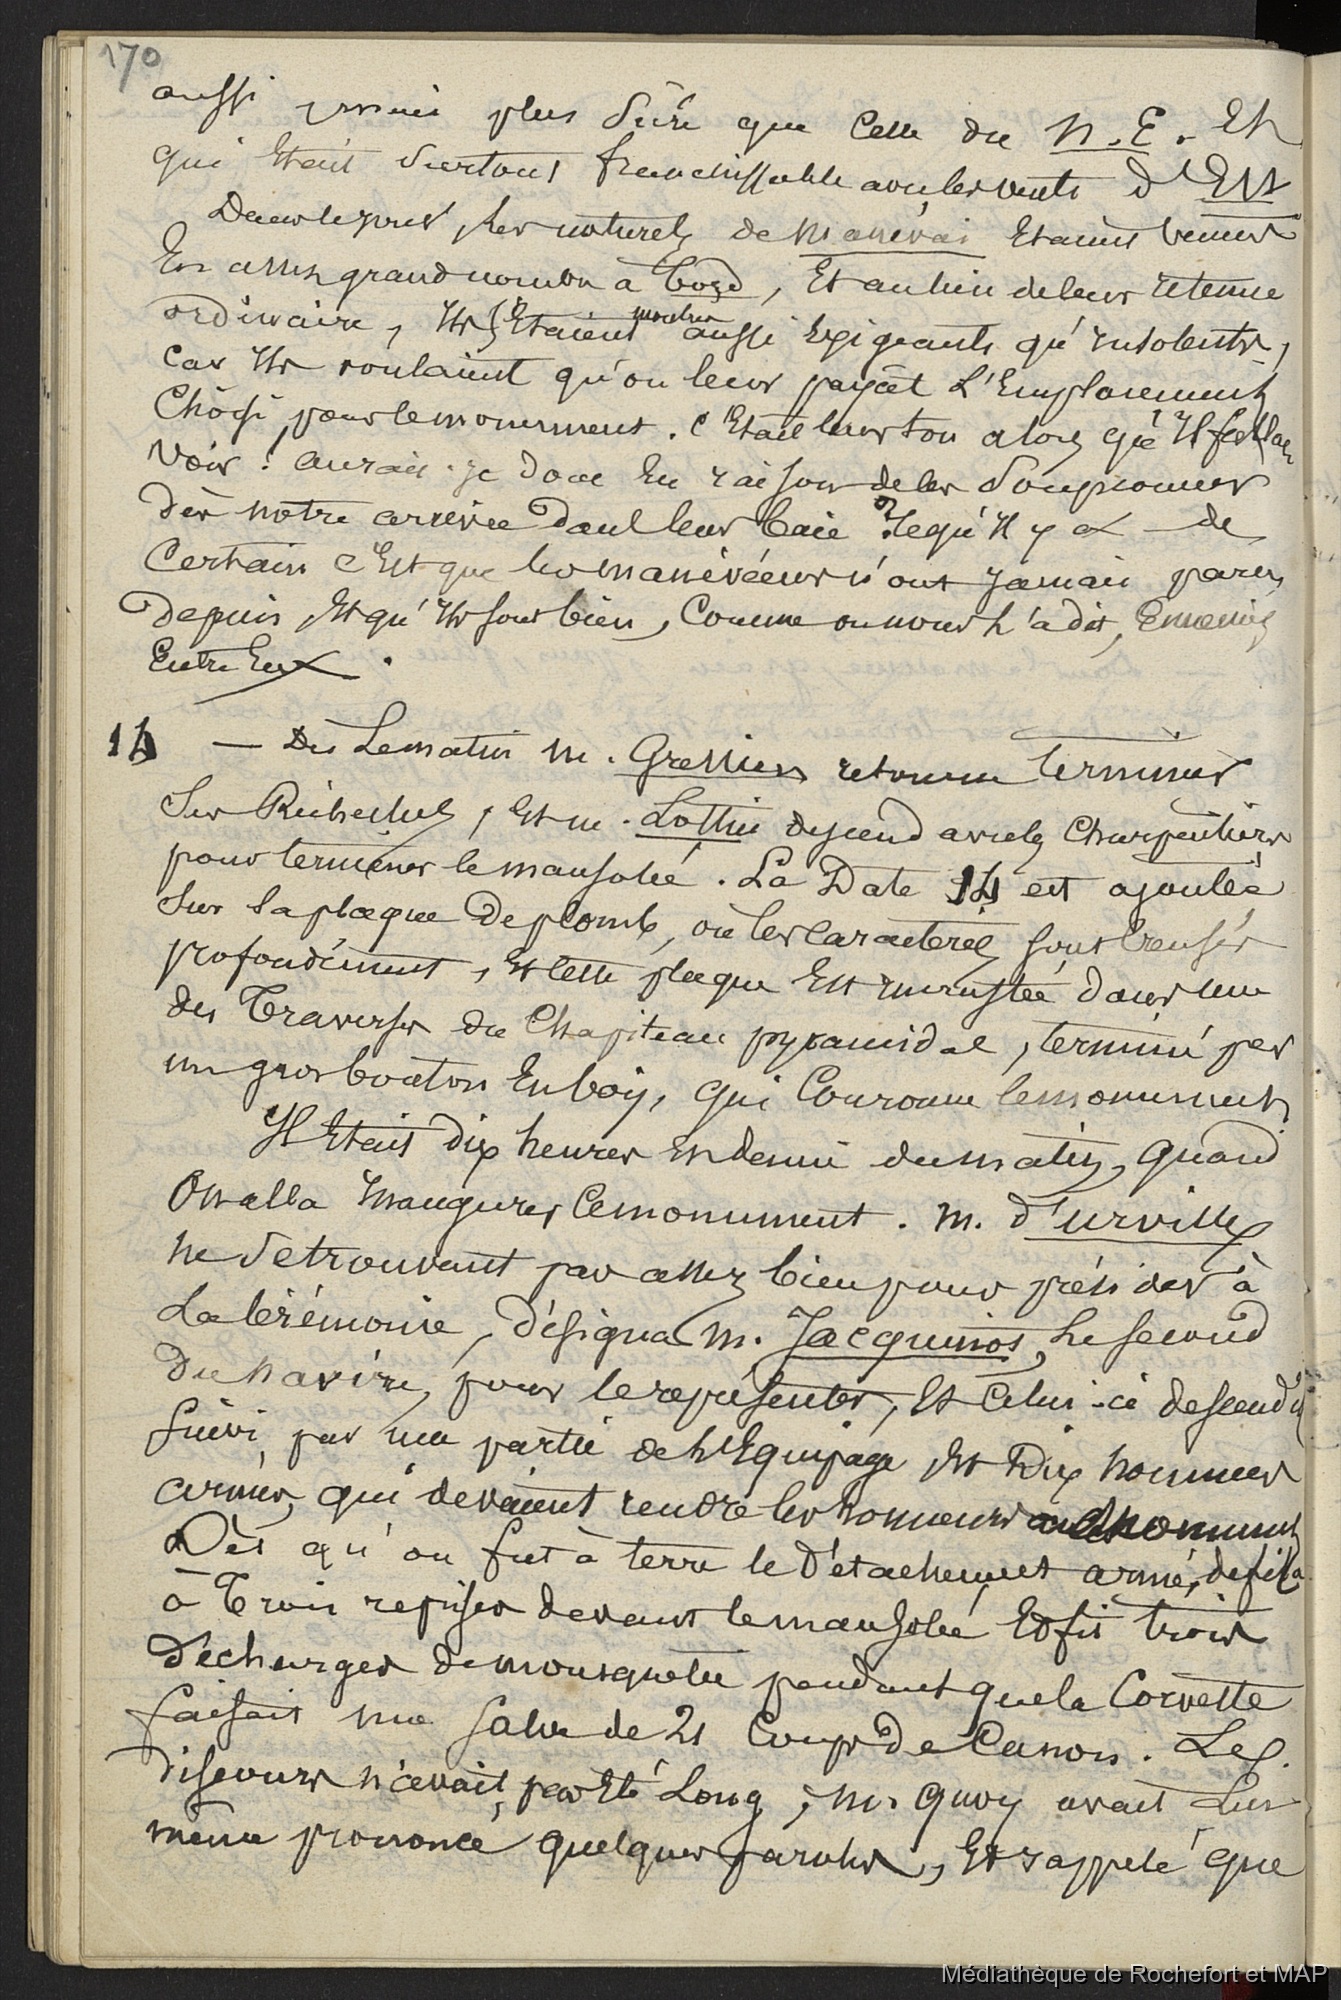 170
aussi mais plus Sûre que Celle du N.E. Et
qui Etait Surtout franchissable avec les vents d'Est
Dans le jour, les naturels de Manévai Etaient venus
En assez grand nombre à bord, Et au lieu de leur retenue
ordinaire, Ils s'Etaient montrés aussi Exigeants qu'insolents,
Car Ils voulaient qu'on leur payât L'Emplacement
Choisi pour le monument. C'Etait leur ton alors qu'Il fallait
Voir! aurais-je donc Eu raison de les Soupçonner
dès notre arrivée dans leur baie? Ce qu'Il y a de
Certain c'Est que les manévéens n'ont Jamais paru,
Depuis Et qu'Ils sont bien, Comme on nous l'a dit, Ennemis
Entre Eux.
14 — Dès Le matin m. Gressien retourne terminer
Ses Recherches, Et m. Lottin descend avec les Charpentiers
pour terminer le mausolée. La Date 14 est ajoutée
Sur la plaque De plomb, où les Caractères sont Creusés
profondément, Et Cette plaque Est incrustée dans une
des Traverses du Chapiteau pyramidal, terminé par
un gros bouton En bois, qui Couronne le monument.
Il Etait dix heures Et demie du matin, quand
On alla Inaugurer Ce monument. M. d'Urville
ne Se trouvant pas assez bien pour présider à
La Cérémonie, Désigna M. Jacquinot, le second
Du navire, pour le représenter, Et Celui-ci descendit
Suivi par une partie de l'Equipage Et Dix hommes
armés, qui devaient rendre les honneurs au monument
Dès qu'on fut à terre le Détachement armé, défila
à Trois reprises devant le mausolée Et fit trois
Décharges de mousqueterie pendant que la Corvette
faisait une Salve de 21 Coups De Canon. Les
Discours n'avait pas Eté Long; M. Quoy avait Lui
même prononcé quelques paroles, Et rappelé que
Médiathèque de Rochefort et MAP